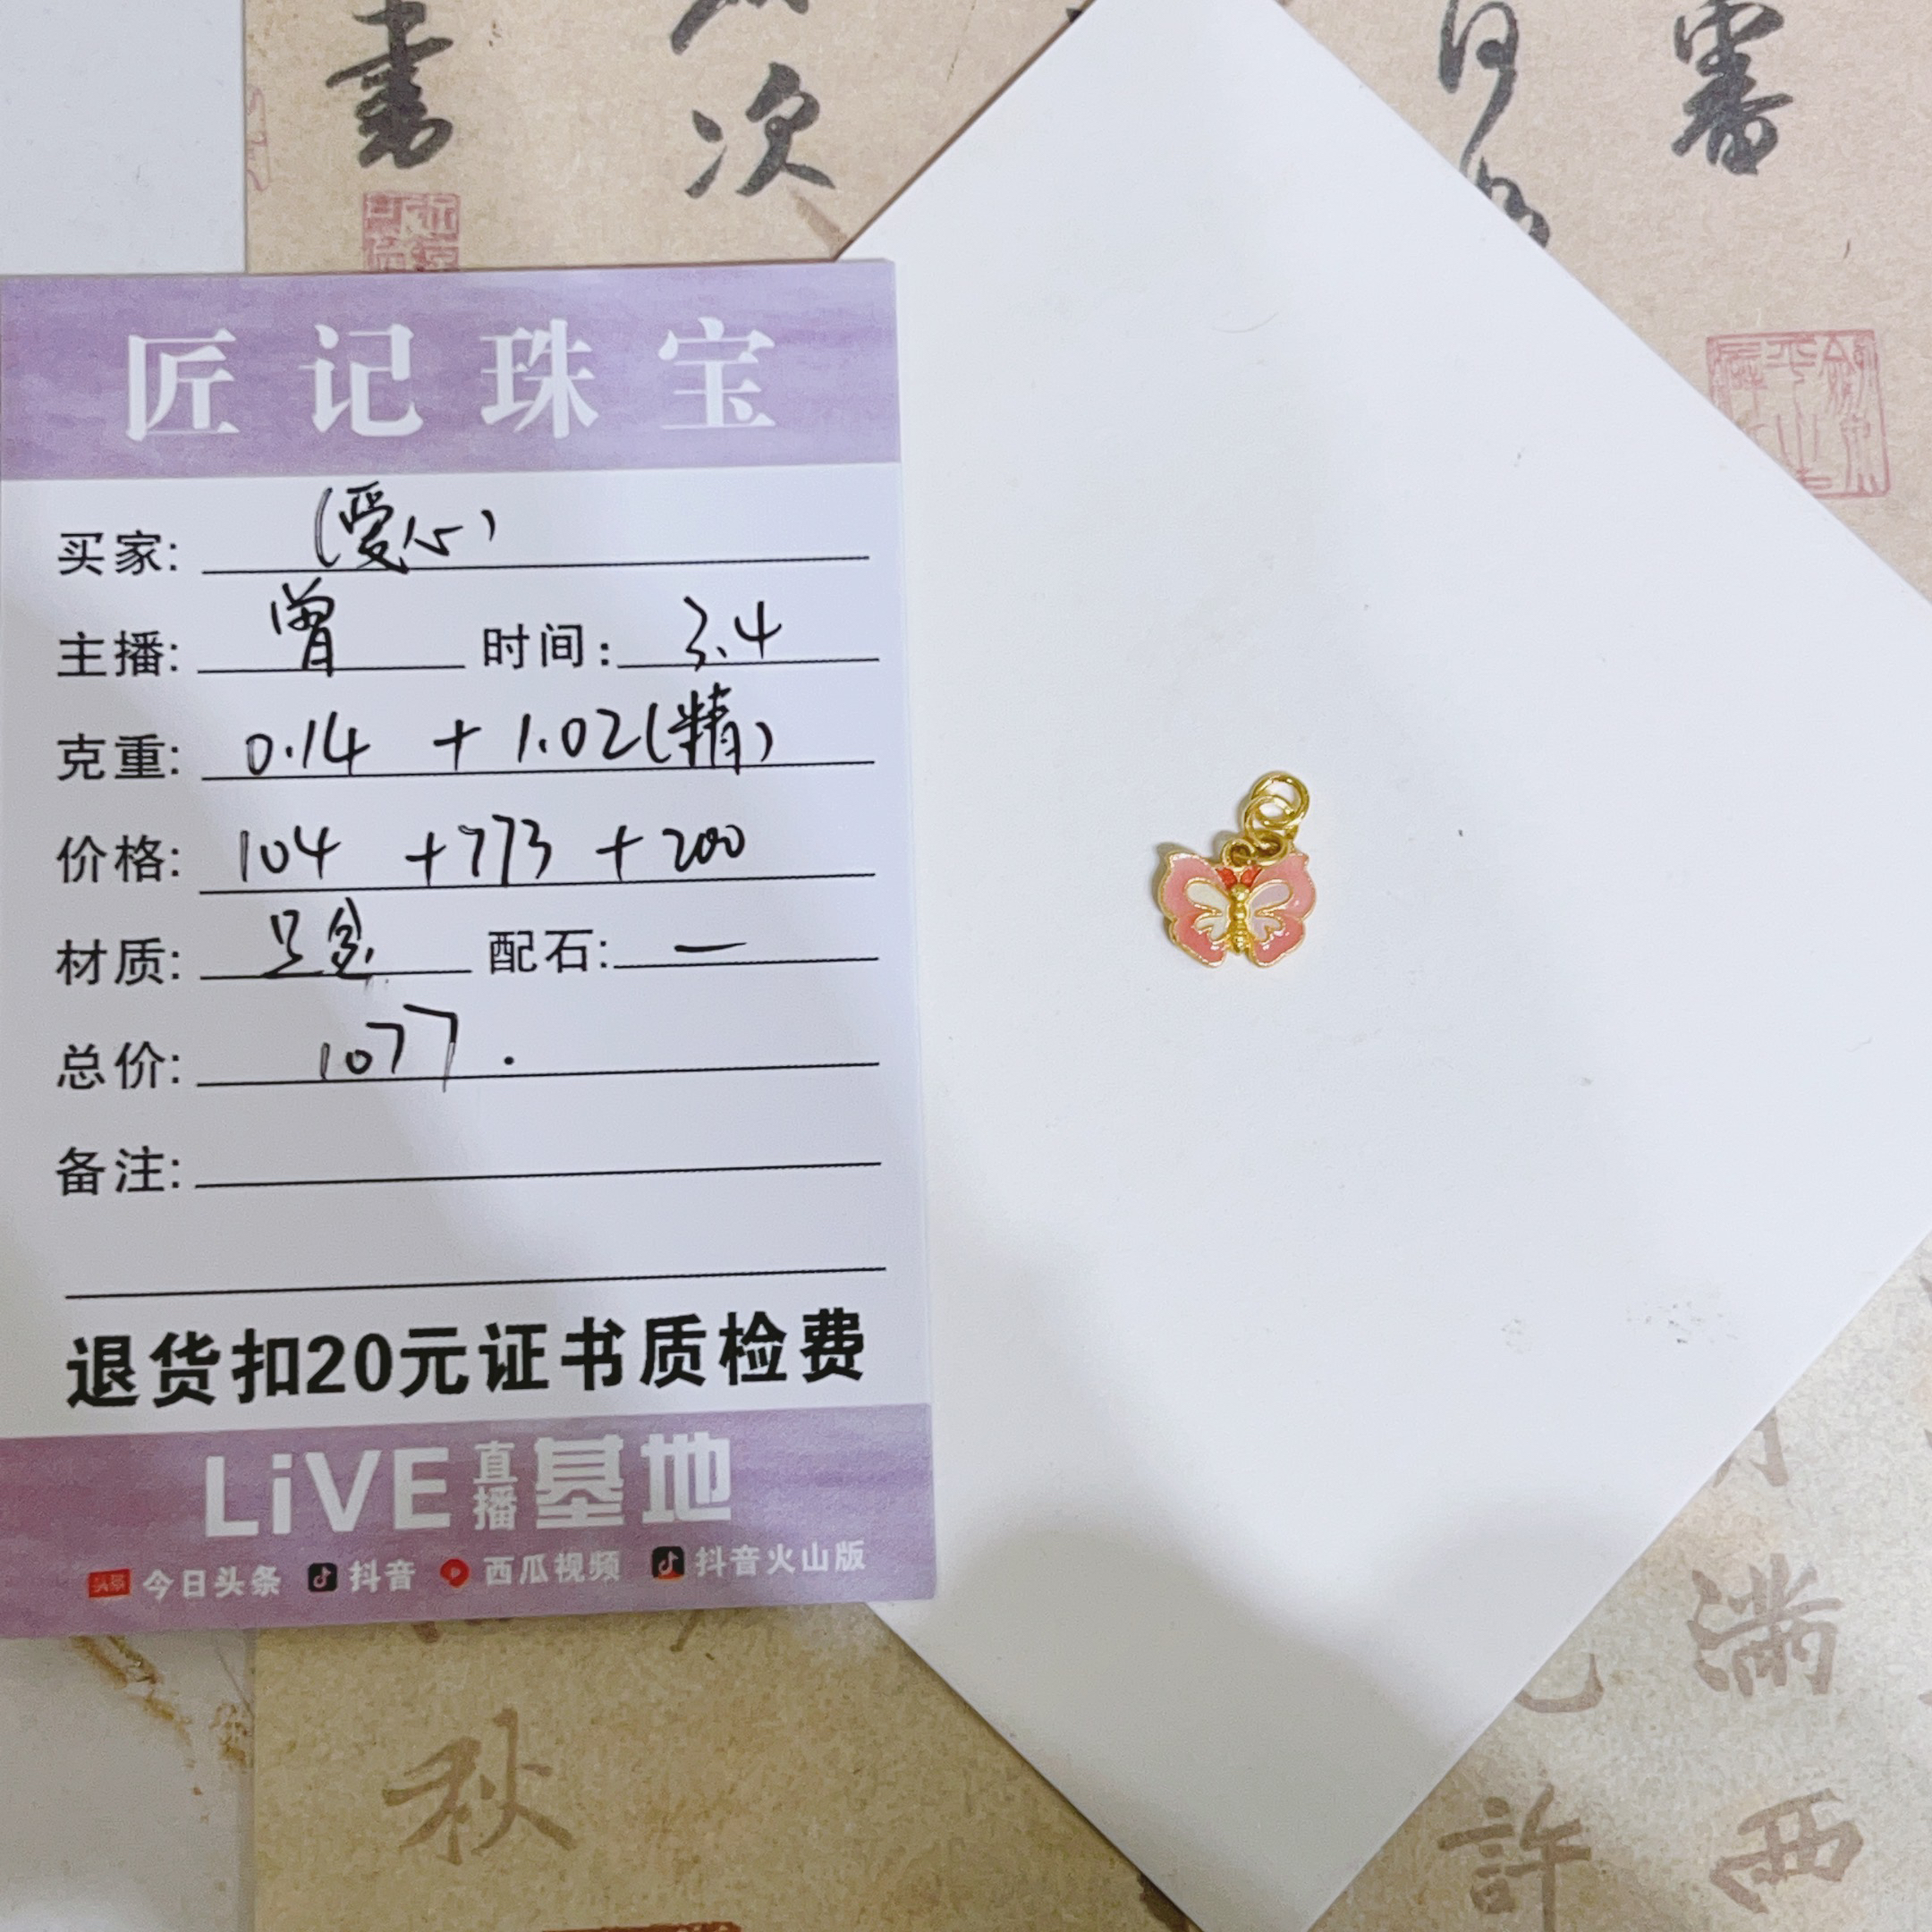 書
次
審
匠记珠宝
买家: (爱心)
主播: 曾 时间: 3.4
克重: 0.14 + 1.02(精)
价格: 104 +773 +200
材质: 足金 配石: 一
总价: 1077.
备注:
退货扣20元证书质检费
LiVE直播基地
头条 今日头条 抖音 西瓜视频 抖音火山版
秋
满
許
西